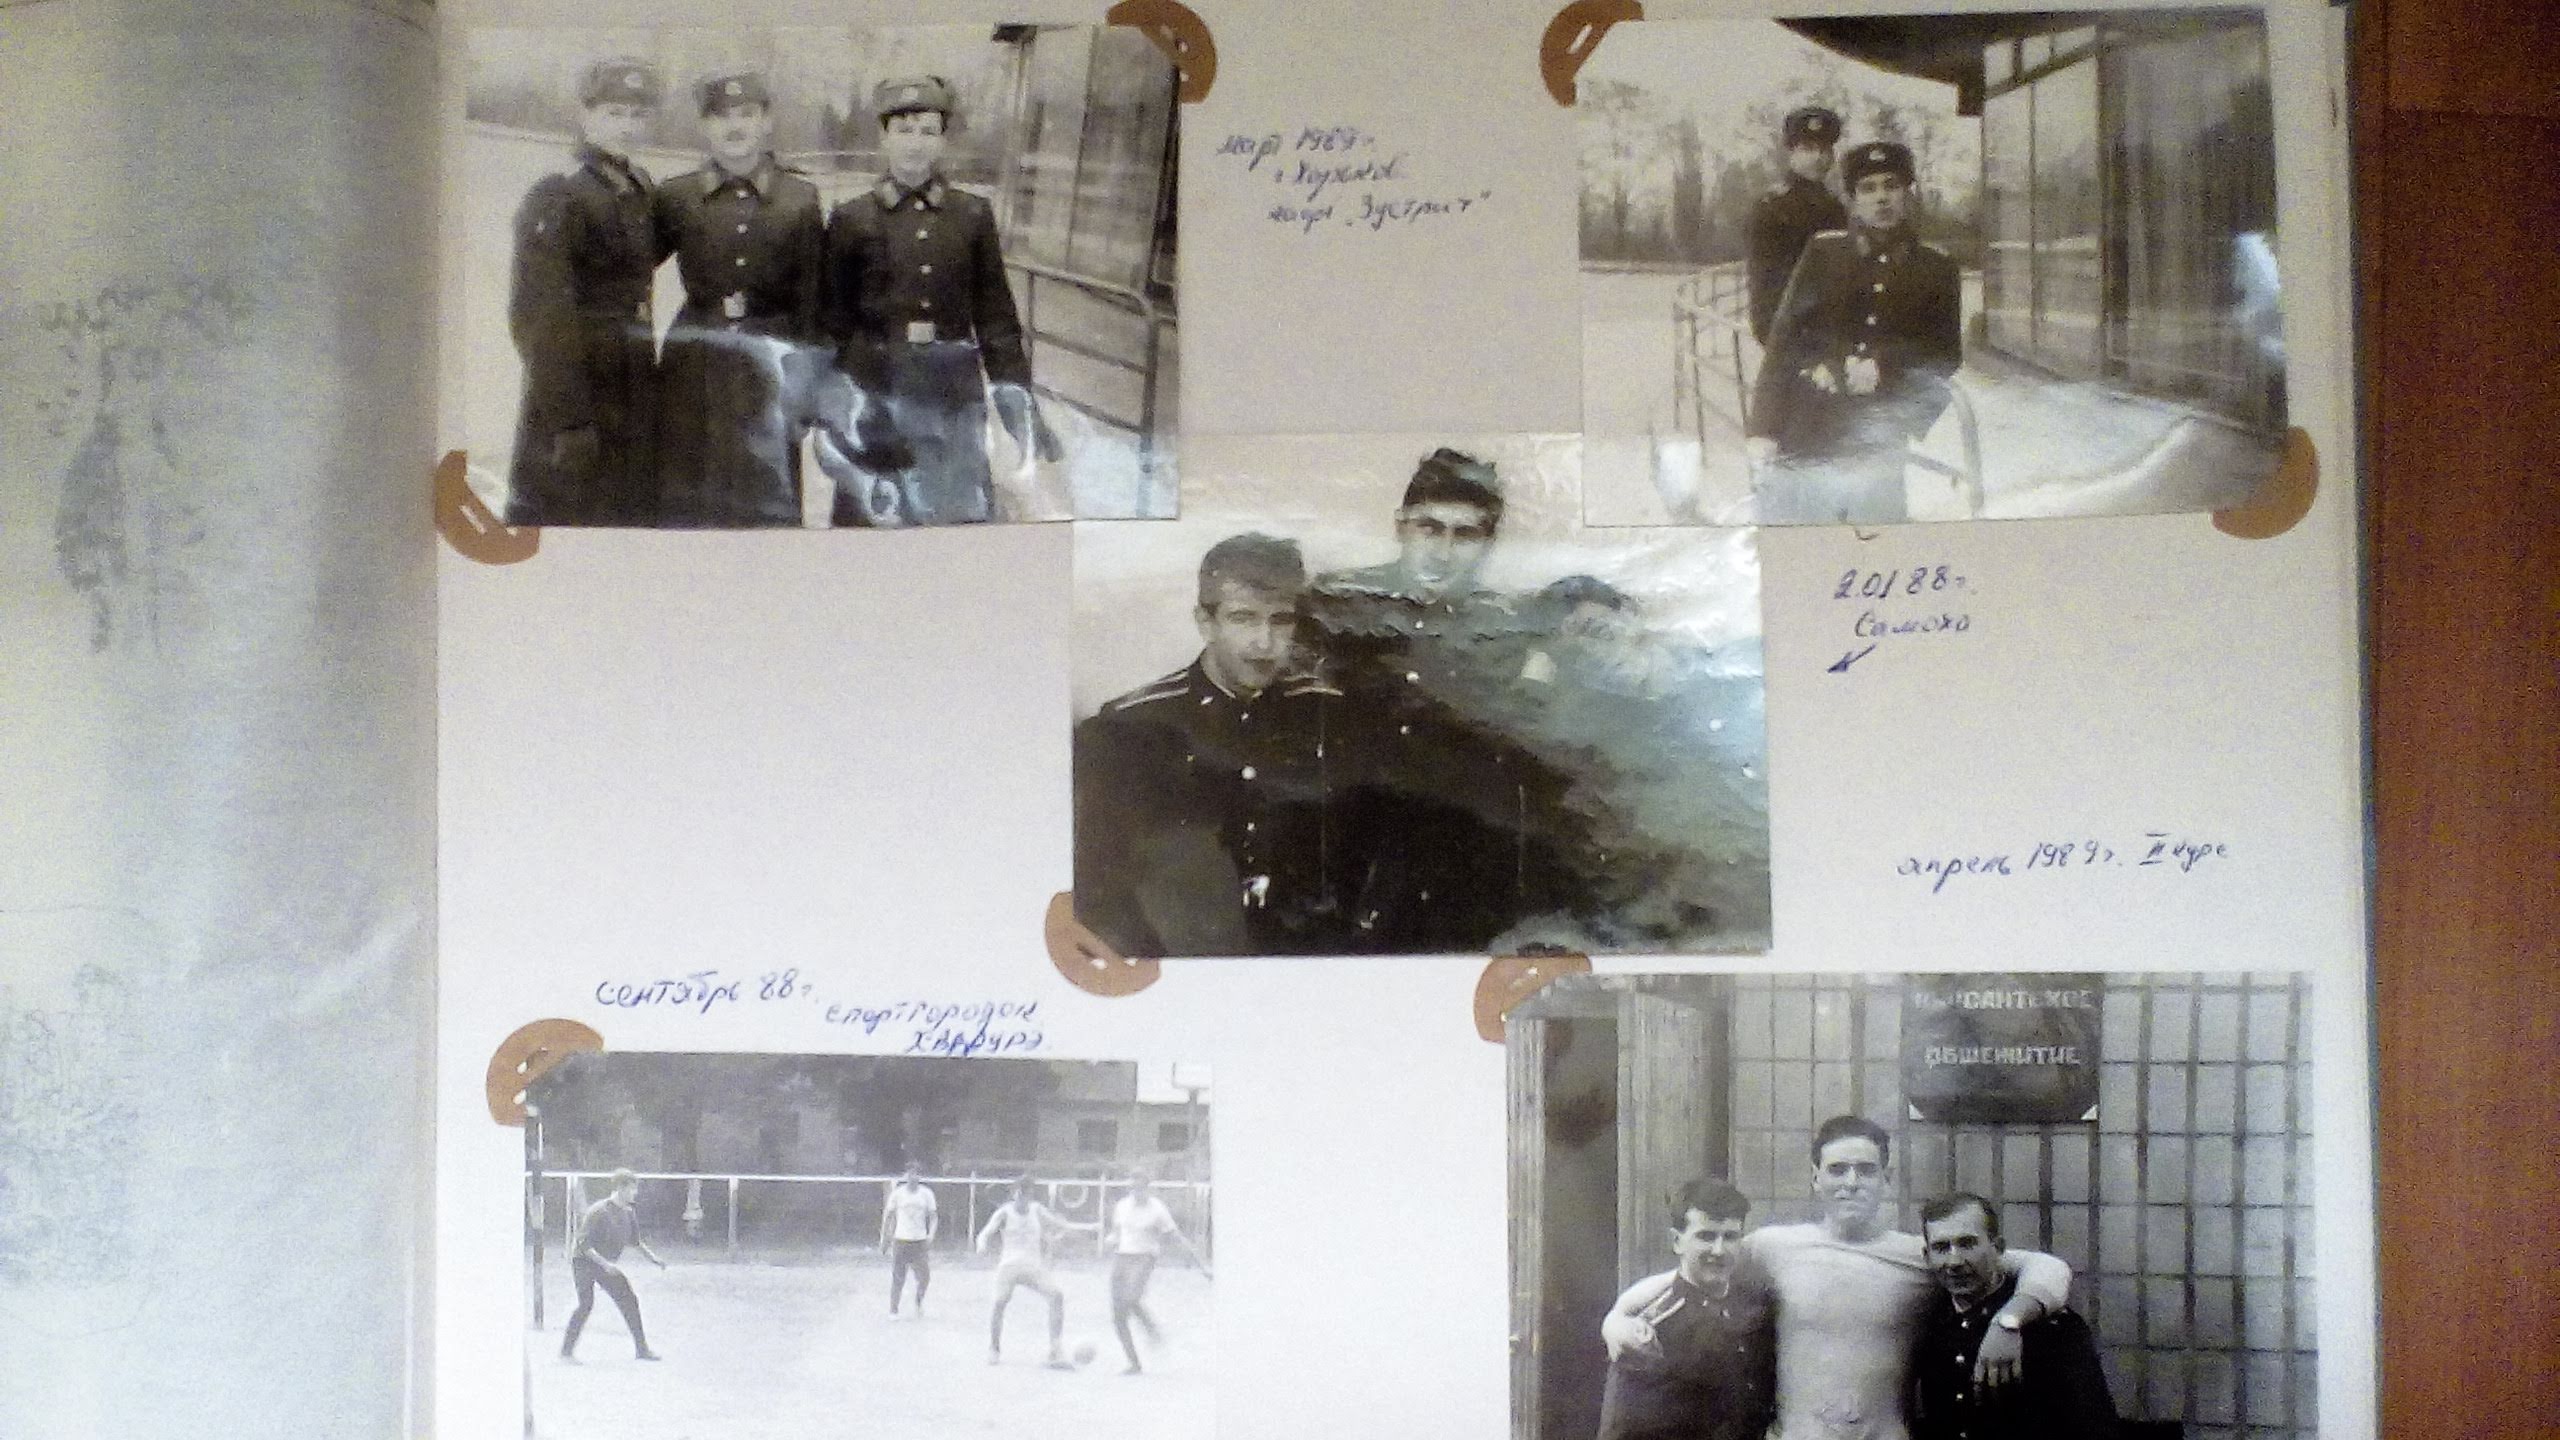 март 1989г.
г. Харьков.
кафе „Зустрич"
2.01 88г.
Самоха
апрель 1989г. II курс
сентябрь 88г.
спортгородок
ХВВАУРЭ
КУРСАНТСКОЕ
ОБЩЕЖИТИЕ